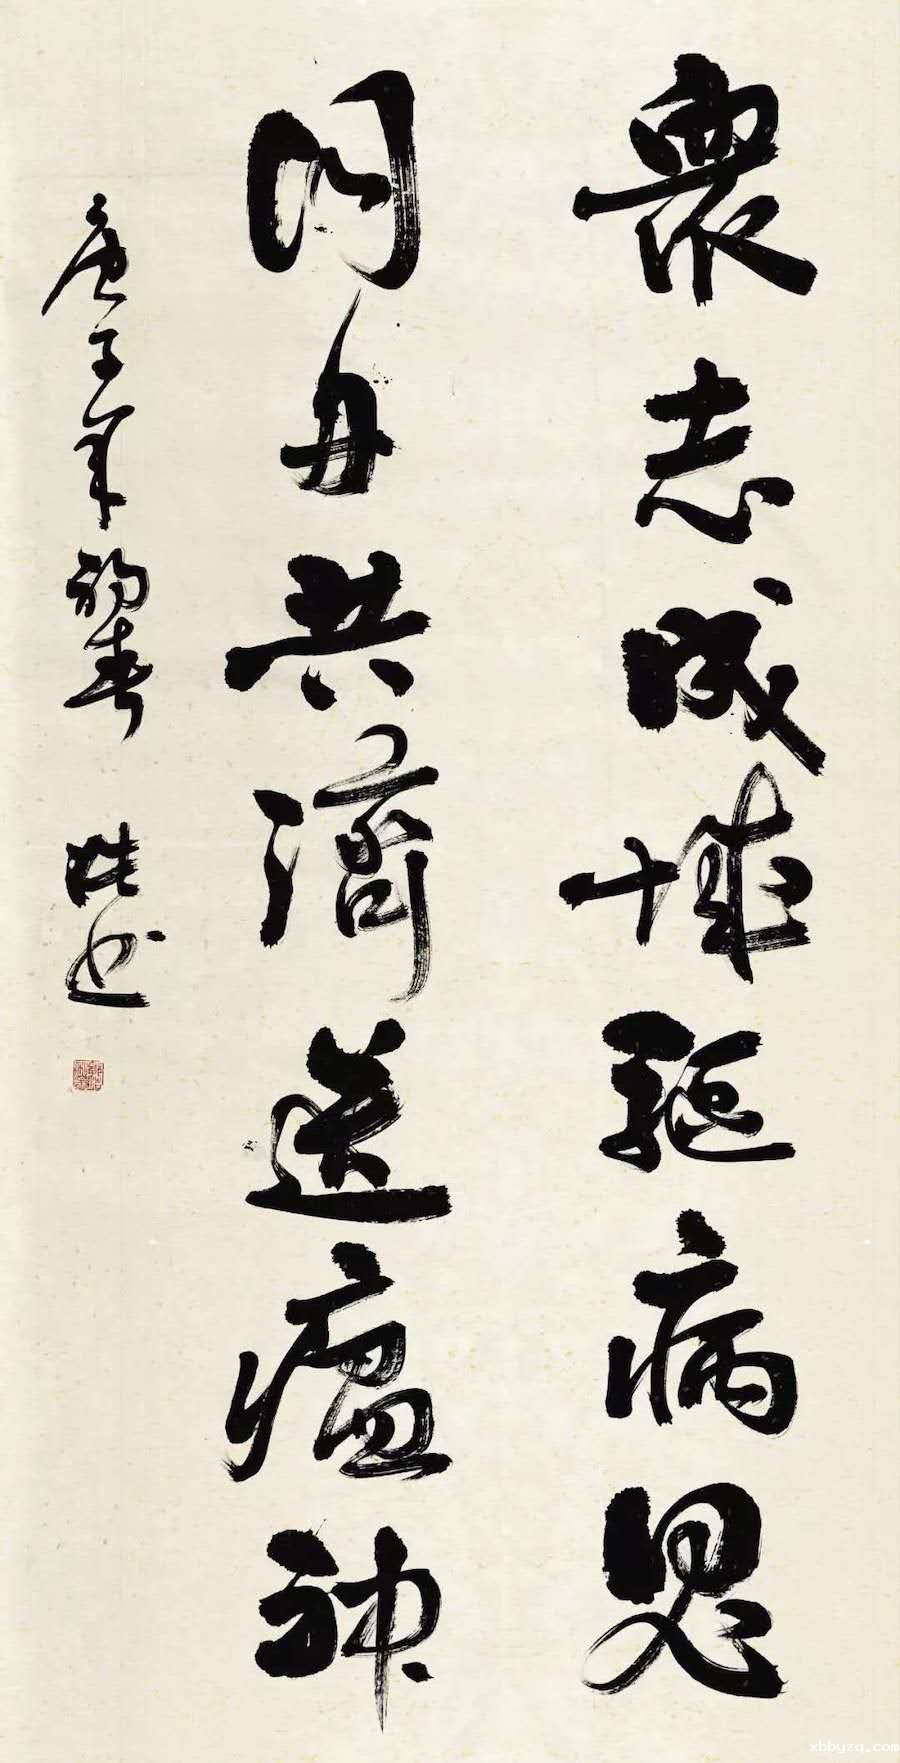 衆志成城驱病思
同舟共濟送瘟神
庚子年初春
xbbyzq.com